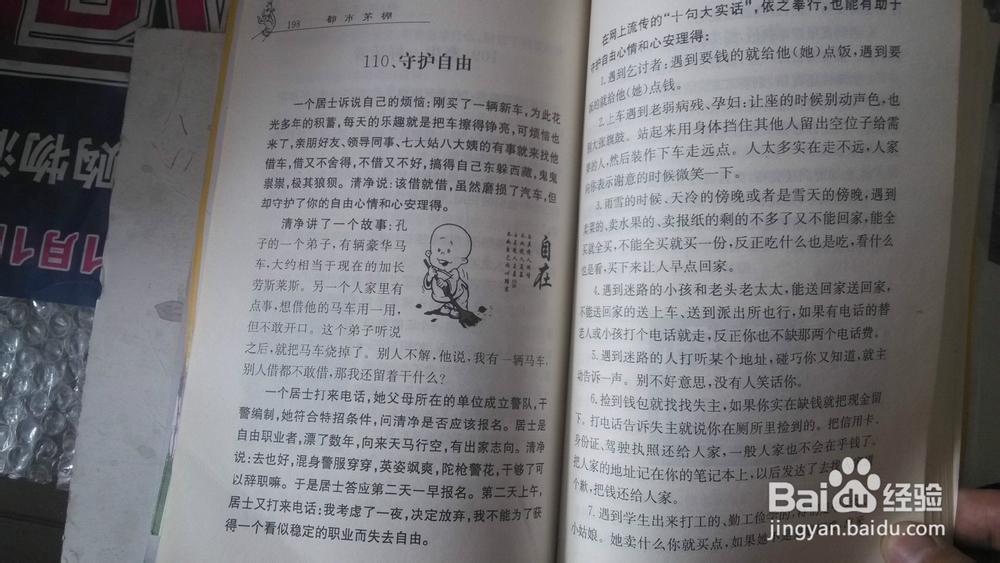 198 都市茅棚
110、守护自由
一个居士诉说自己的烦恼：刚买了一辆新车，为此花
光多年的积蓄，每天的乐趣就是把车擦得铮亮，可烦恼也
来了，亲朋好友、领导同事、七大姑八大姨的有事就来找他
借车，借又不舍得，不借又不好，搞得自己东躲西藏，鬼鬼
祟祟，极其狼狈。清净说：该借就借，虽然磨损了汽车，但
却守护了你的自由心情和心安理得。
清净讲了一个故事：孔
子的一个弟子，有辆豪华马
车，大约相当于现在的加长
劳斯莱斯。另一个人家里有
点事，想借他的马车用一用，
但不敢开口。这个弟子听说
之后，就把马车烧掉了。别人不解，他说，我有一辆马车，
别人借都不敢借，那我还留着干什么？
自在
一个居士打来电话，她父母所在的单位成立警队，干
警编制，她符合特招条件，问清净是否应该报名。居士是
自由职业者，漂了数年，向来天马行空，有出家志向。清净
说：去也好，混身警服穿穿，英姿飒爽，陀枪警花，干够了可
以辞职嘛。于是居士答应第二天一早报名。第二天上午，
居士又打来电话：我考虑了一夜，决定放弃，我不能为了获
得一个看似稳定的职业而失去自由。
在网上流传的“十句大实话”，依之奉行，也能有助于
守护自由心情和心安理得：
1.遇到乞讨者：遇到要钱的就给他（她）点饭，遇到要
的就给他（她）点钱。
2.上车遇到老弱病残、孕妇：让座的时候别动声色，也
大张旗鼓。站起来用身体挡住其他人留出空位子给需
要的人，然后装作下车走远点。人太多实在走不远，人家
向你表示谢意的时候微笑一下。
3.雨雪的时候、天冷的傍晚或者是雪天的傍晚，遇到
卖菜的、卖水果的、卖报纸的剩的不多了又不能回家，能全
买就全买，不能全买就买一份，反正吃什么也是吃，看什么
也是看，买下来让人早点回家。
4.遇到迷路的小孩和老头老太太，能送回家送回家，
不能送回家的送上车、送到派出所也行，如果有电话的替
老人或小孩打个电话就走，反正你也不缺那两个电话费。
5.遇到迷路的人打听某个地址，碰巧你又知道，就主
动告诉一声。别不好意思，没有人笑话你。
6.捡到钱包就找找失主，如果你实在缺钱就把现金留
下。打电话告诉失主就说你在厕所里捡到的。把信用卡、
身份证、驾驶执照还给人家，一般人家也不会在乎钱了。
把人家的地址记在你的笔记本上，以后发达了去找
个歉，把钱还给人家。
7.遇到学生出来打工的、勤工俭学的，
小姑娘。她卖什么你就买点，如果她
购物
1月1
Baidu经验
jingyan.baidu.com